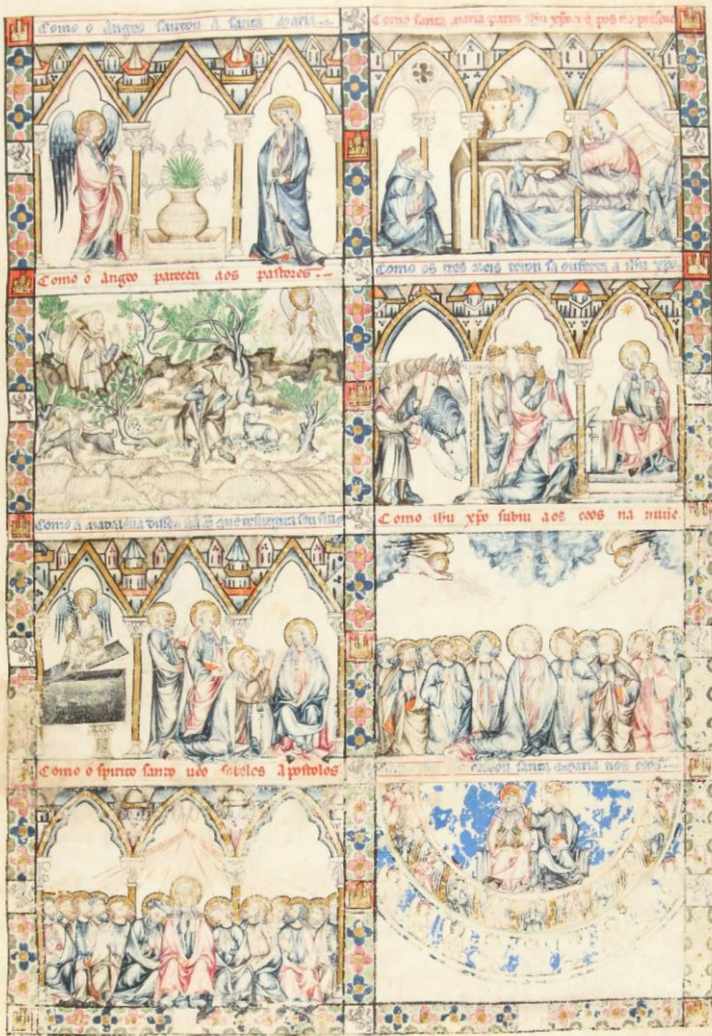 Como o angeo saudou a santa maria
Como santa maria pariu ihu xpo e o pos no preseue
Como o angeo pareceu aos pastores
Como os tres reis a ihu xpo
Como a madalena disse
Como ihu xpo subiu aos ceos na nuue
Como o spirito santo uẽo sobelos apostolos
santa maria nos ceos